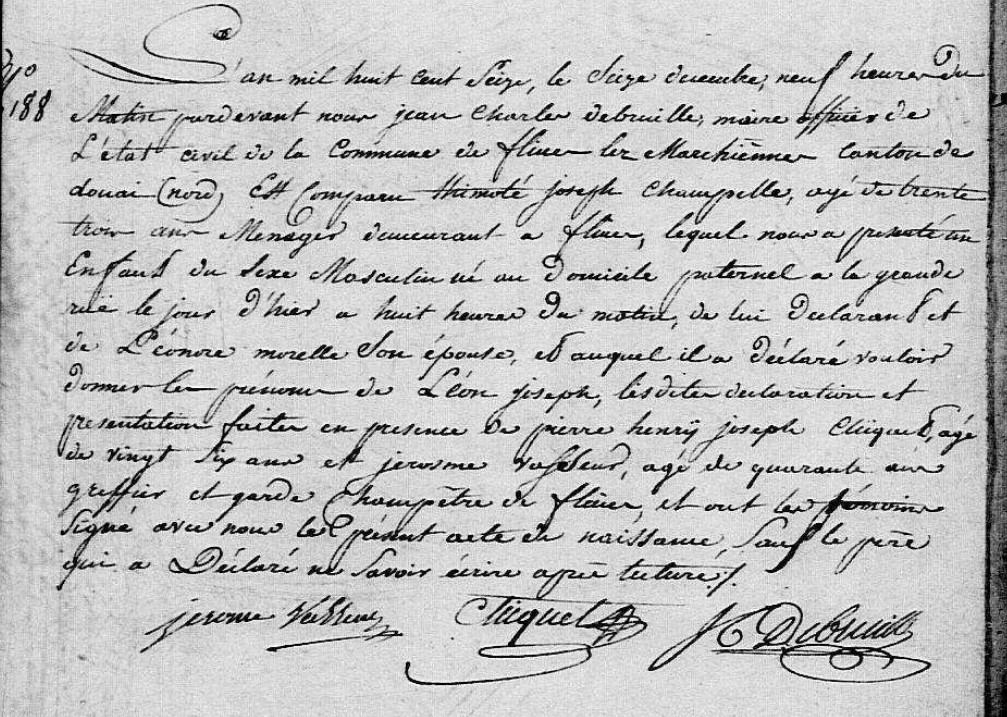 N°
188
L'an mil huit cent Seize, le Seize decembre, neuf heures du
Matin pardevant nous jean Charles debruille, maire officier de
L'état civil de la Commune de flines lez Marchiennes canton de
douai (nord) Est Comparu thimoté joseph Champelle, agé de trente
trois ans Menager demeurant a flines, lequel nous a presenté un
Enfant du Sexe Masculin né au domicile paternel a la grande
ruë le jour d'hier a huit heures du matin, de lui declarant et
de Léonore morelle Son épouse, et auquel il a déclaré vouloir
donner les prénoms de Léon joseph, lesdites declaration et
presentation faites en presence de pierre henrÿ joseph Clicquet, agé
de vingt Six ans et jerosme vasseur, agé de quarante ans
greffier et garde Champêtre de flines, et ont les témoins
Signé avec nous le présent acte de naissance, Sauf le pere
qui a Déclaré ne Savoir écrire après lecture ./.
jerome Vasseur Clicquet JC Debruille